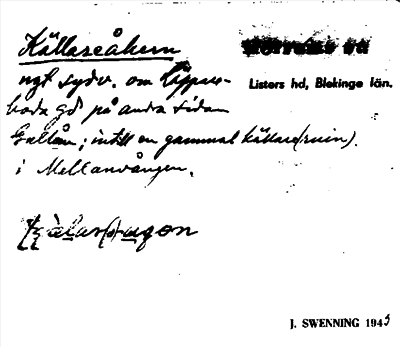 Källareåkern
ngt sydv. om
Listers hd, Blekinge län.
boda gd på andra sidan
Gallån; intill en gammal källare(ruin).
i Mellanvången.
J. SWENNING 1945